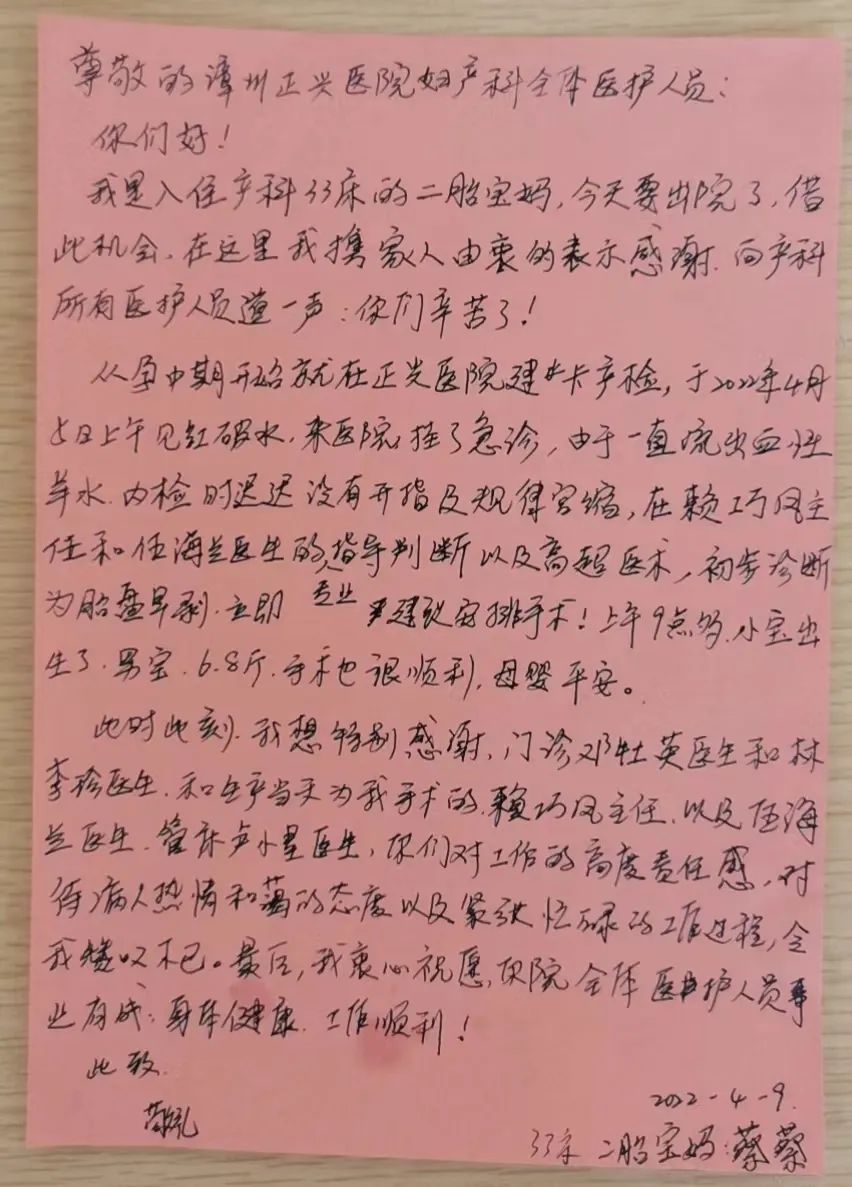 尊敬的漳州正兴医院妇产科全体医护人员：
你们好！
我是入住产科33床的二胎宝妈，今天要出院了，借
此机会，在这里我携家人由衷的表示感谢，向产科
所有医护人员道一声：你们辛苦了！
从孕中期开始就在正兴医院建卡产检，于2022年4月
5日上午见红破水，来医院挂了急诊，由于一直流出血性
羊水，内检时迟迟没有开指及规律宫缩，在赖巧凤主
任和伍海兰医生的指导判断以及高超医术，初步诊断
为胎盘早剥，立即专业建议安排手术！上午9点多，小宝出
生了，男宝，6.8斤，手术也很顺利，母婴平安。
此时此刻，我想特别感谢，门诊邓牡英医生和林
李珍医生，和生产当天为我手术的，赖巧凤主任，以及伍海
兰医生，管床卢小星医生，你们对工作的高度责任感，对
待病人热情和蔼的态度以及紧张忙碌的工作过程，令
我赞叹不已。最后，我衷心祝愿，贵院全体医护人员事
业有成，身体健康，工作顺利！
此致
敬礼
2022-4-9.
33床 二胎宝妈：蔡蔡